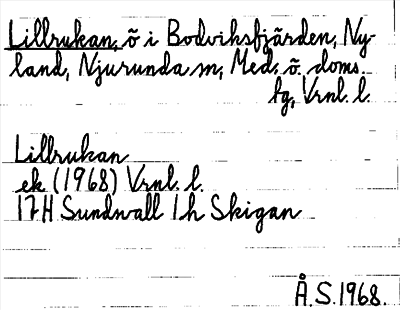 Lillrukan, õ i Bodviksfjärden, Ny-
land, Njurunda sn, Med. ö. doms.
fg, Vrnl. l.
Lillrukan
ek (1968) Vrnl. l.
17H Sundsvall 1h Skigan
Å.S. 1968.